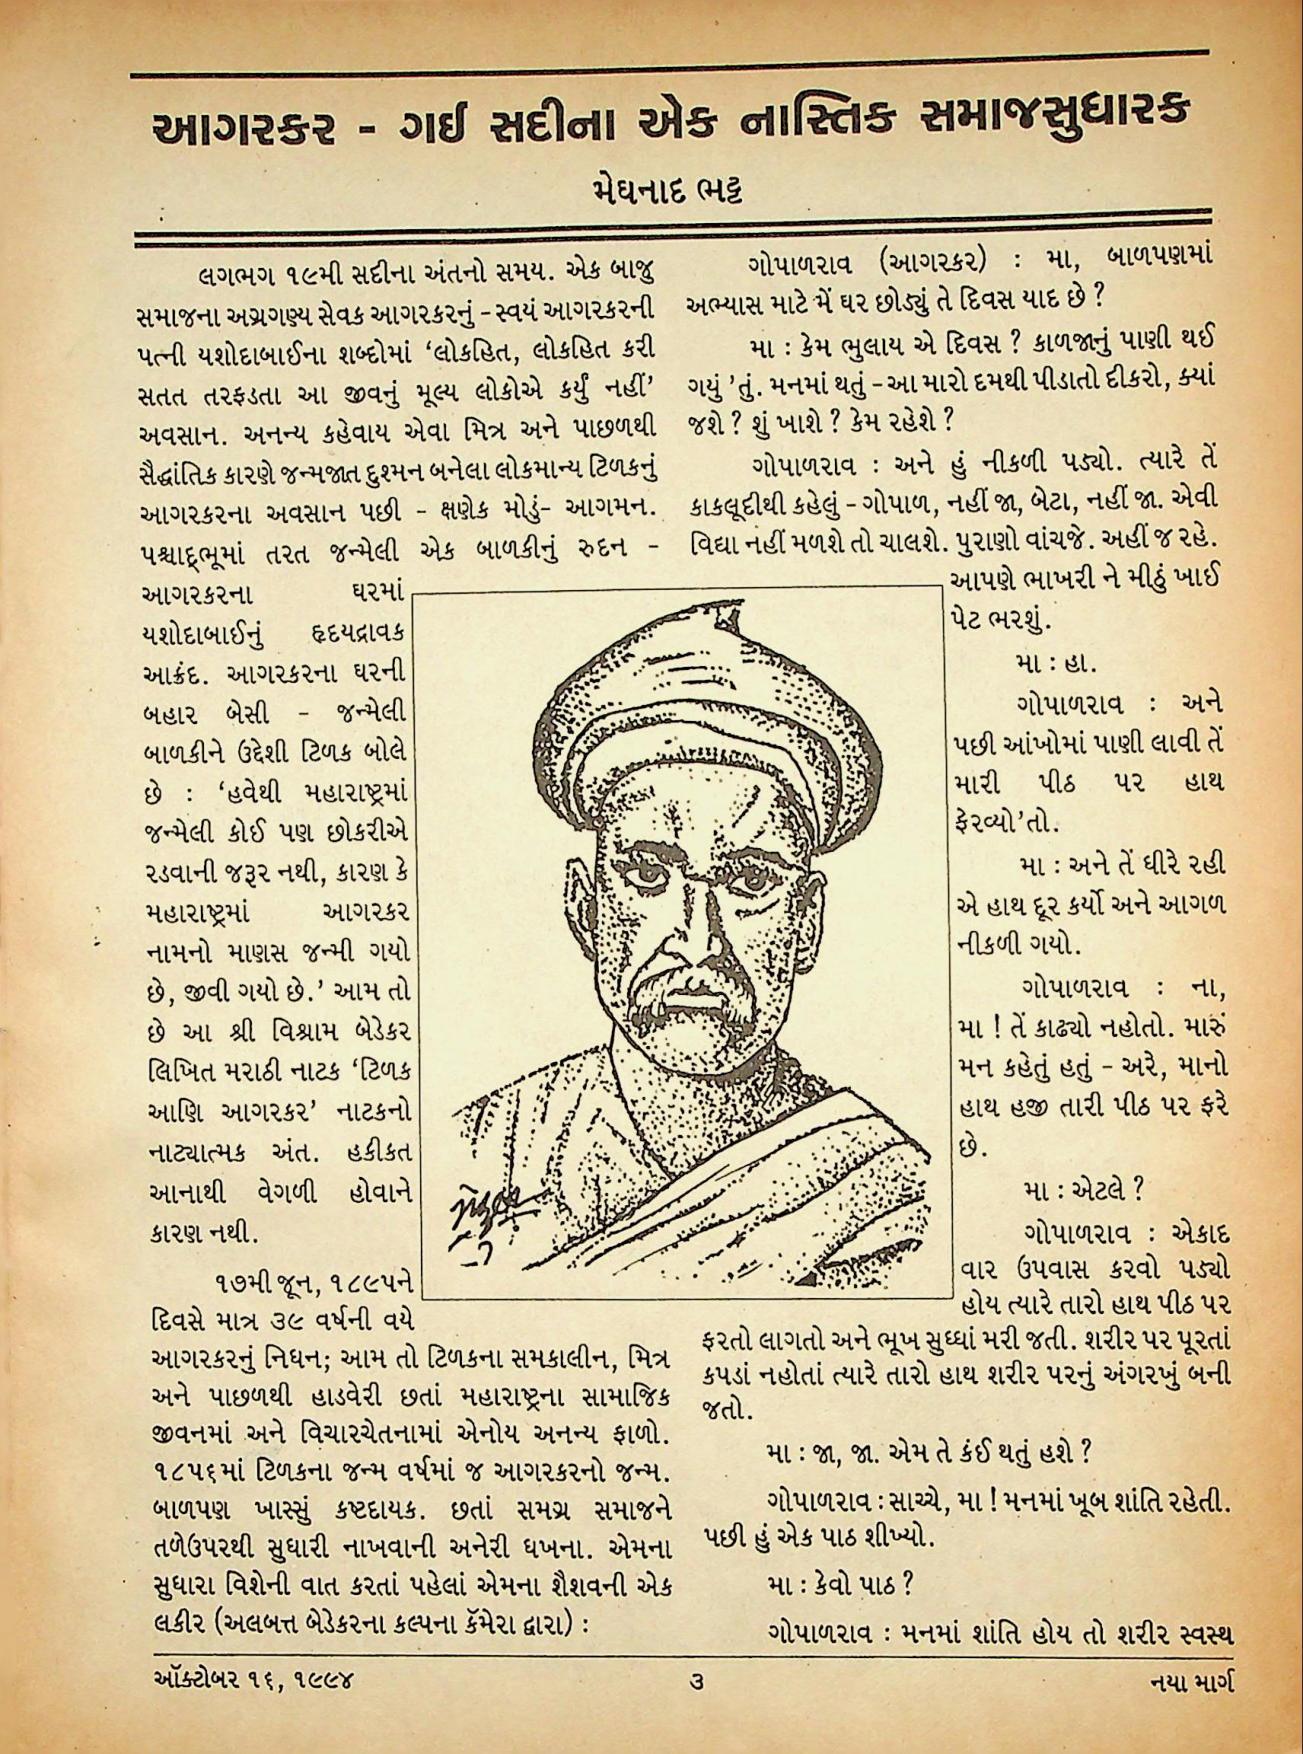 આગરકર - ગઈ સદીના એક નાસ્તિક સમાજસુધારક
મેઘનાદ ભટ્ટ
લગભગ ૧૯મી સદીના અંતનો સમય. એક બાજુ
સમાજના અગ્રગણ્ય સેવક આગરકરનું - સ્વયં આગરકરની
પત્ની યશોદાબાઈના શબ્દોમાં ‘લોકહિત, લોકહિત કરી
સતત તરફડતા આ જીવનું મૂલ્ય લોકોએ કર્યું નહીં’
અવસાન. અનન્ય કહેવાય એવા મિત્ર અને પાછળથી
સૈદ્ધાંતિક કારણે જન્મજાત દુશ્મન બનેલા લોકમાન્ય ટિળકનું
આગરકરના અવસાન પછી - ક્ષણેક મોડું- આગમન.
પશ્ચાદ્ભૂમાં તરત જન્મેલી એક બાળકીનું રુદન -
આગરકરના ઘરમાં
યશોદાબાઈનું હૃદયદ્રાવક
આક્રંદ. આગરકરના ઘરની
બહાર બેસી - જન્મેલી
બાળકીને ઉદ્દેશી ટિળક બોલે
છે : ‘હવેથી મહારાષ્ટ્રમાં
જન્મેલી કોઈ પણ છોકરીએ
રડવાની જરૂર નથી, કારણ કે
મહારાષ્ટ્રમાં આગરકર
નામનો માણસ જન્મી ગયો
છે, જીવી ગયો છે.’ આમ તો
છે આ શ્રી વિશ્રામ બેડેકર
લિખિત મરાઠી નાટક ‘ટિળક
આણિ આગરકર’ નાટકનો
નાટ્યાત્મક અંત. હકીકત
આનાથી વેગળી હોવાને
કારણ નથી.
૧૭મી જૂન, ૧૮૯૫ને
દિવસે માત્ર ૩૯ વર્ષની વયે
આગરકરનું નિધન; આમ તો ટિળકના સમકાલીન, મિત્ર
અને પાછળથી હાડવેરી છતાં મહારાષ્ટ્રના સામાજિક
જીવનમાં અને વિચારચેતનામાં એનોય અનન્ય ફાળો.
૧૮૫૬માં ટિળકના જન્મ વર્ષમાં જ આગરકરનો જન્મ.
બાળપણ ખાસ્સું કષ્ટદાયક. છતાં સમગ્ર સમાજને
તળેઉપરથી સુધારી નાખવાની અનેરી ધખના. એમના
સુધારા વિશેની વાત કરતાં પહેલાં એમના શૈશવની એક
લકીર (અલબત્ત બેડેકરના કલ્પના કૅમેરા દ્વારા) :
ગોપાળરાવ (આગરકર) : મા, બાળપણમાં
અભ્યાસ માટે મેં ઘર છોડ્યું તે દિવસ યાદ છે ?
મા : કેમ ભુલાય એ દિવસ ? કાળજાનું પાણી થઈ
ગયું ’તું. મનમાં થતું - આ મારો દમથી પીડાતો દીકરો, ક્યાં
જશે ? શું ખાશે ? કેમ રહેશે ?
ગોપાળરાવ : અને હું નીકળી પડ્યો. ત્યારે તેં
કાકલૂદીથી કહેલું - ગોપાળ, નહીં જા, બેટા, નહીં જા. એવી
વિદ્યા નહીં મળશે તો ચાલશે. પુરાણો વાંચજે. અહીં જ રહે.
આપણે ભાખરી ને મીઠું ખાઈ
પેટ ભરશું.
મા : હા.
ગોપાળરાવ : અને
પછી આંખોમાં પાણી લાવી તેં
મારી પીઠ પર હાથ
ફેરવ્યો’તો.
મા : અને તેં ધીરે રહી
એ હાથ દૂર કર્યો અને આગળ
નીકળી ગયો.
ગોપાળરાવ : ના,
મા ! તેં કાઢ્યો નહોતો. મારું
મન કહેતું હતું - અરે, માનો
હાથ હજી તારી પીઠ પર ફરે
છે.
મા : એટલે ?
ગોપાળરાવ : એકાદ
વાર ઉપવાસ કરવો પડ્યો
હોય ત્યારે તારો હાથ પીઠ પર
ફરતો લાગતો અને ભૂખ સુધ્ધાં મરી જતી. શરીર પર પૂરતાં
કપડાં નહોતાં ત્યારે તારો હાથ શરીર પરનું અંગરખું બની
જતો.
મા : જા, જા. એમ તે કંઈ થતું હશે ?
ગોપાળરાવ : સાચ્ચે, મા ! મનમાં ખૂબ શાંતિ રહેતી.
પછી હું એક પાઠ શીખ્યો.
મા : કેવો પાઠ ?
ગોપાળરાવ : મનમાં શાંતિ હોય તો શરીર સ્વસ્થ
ઑક્ટોબર ૧૬, ૧૯૯૪
૩
નયા માર્ગ